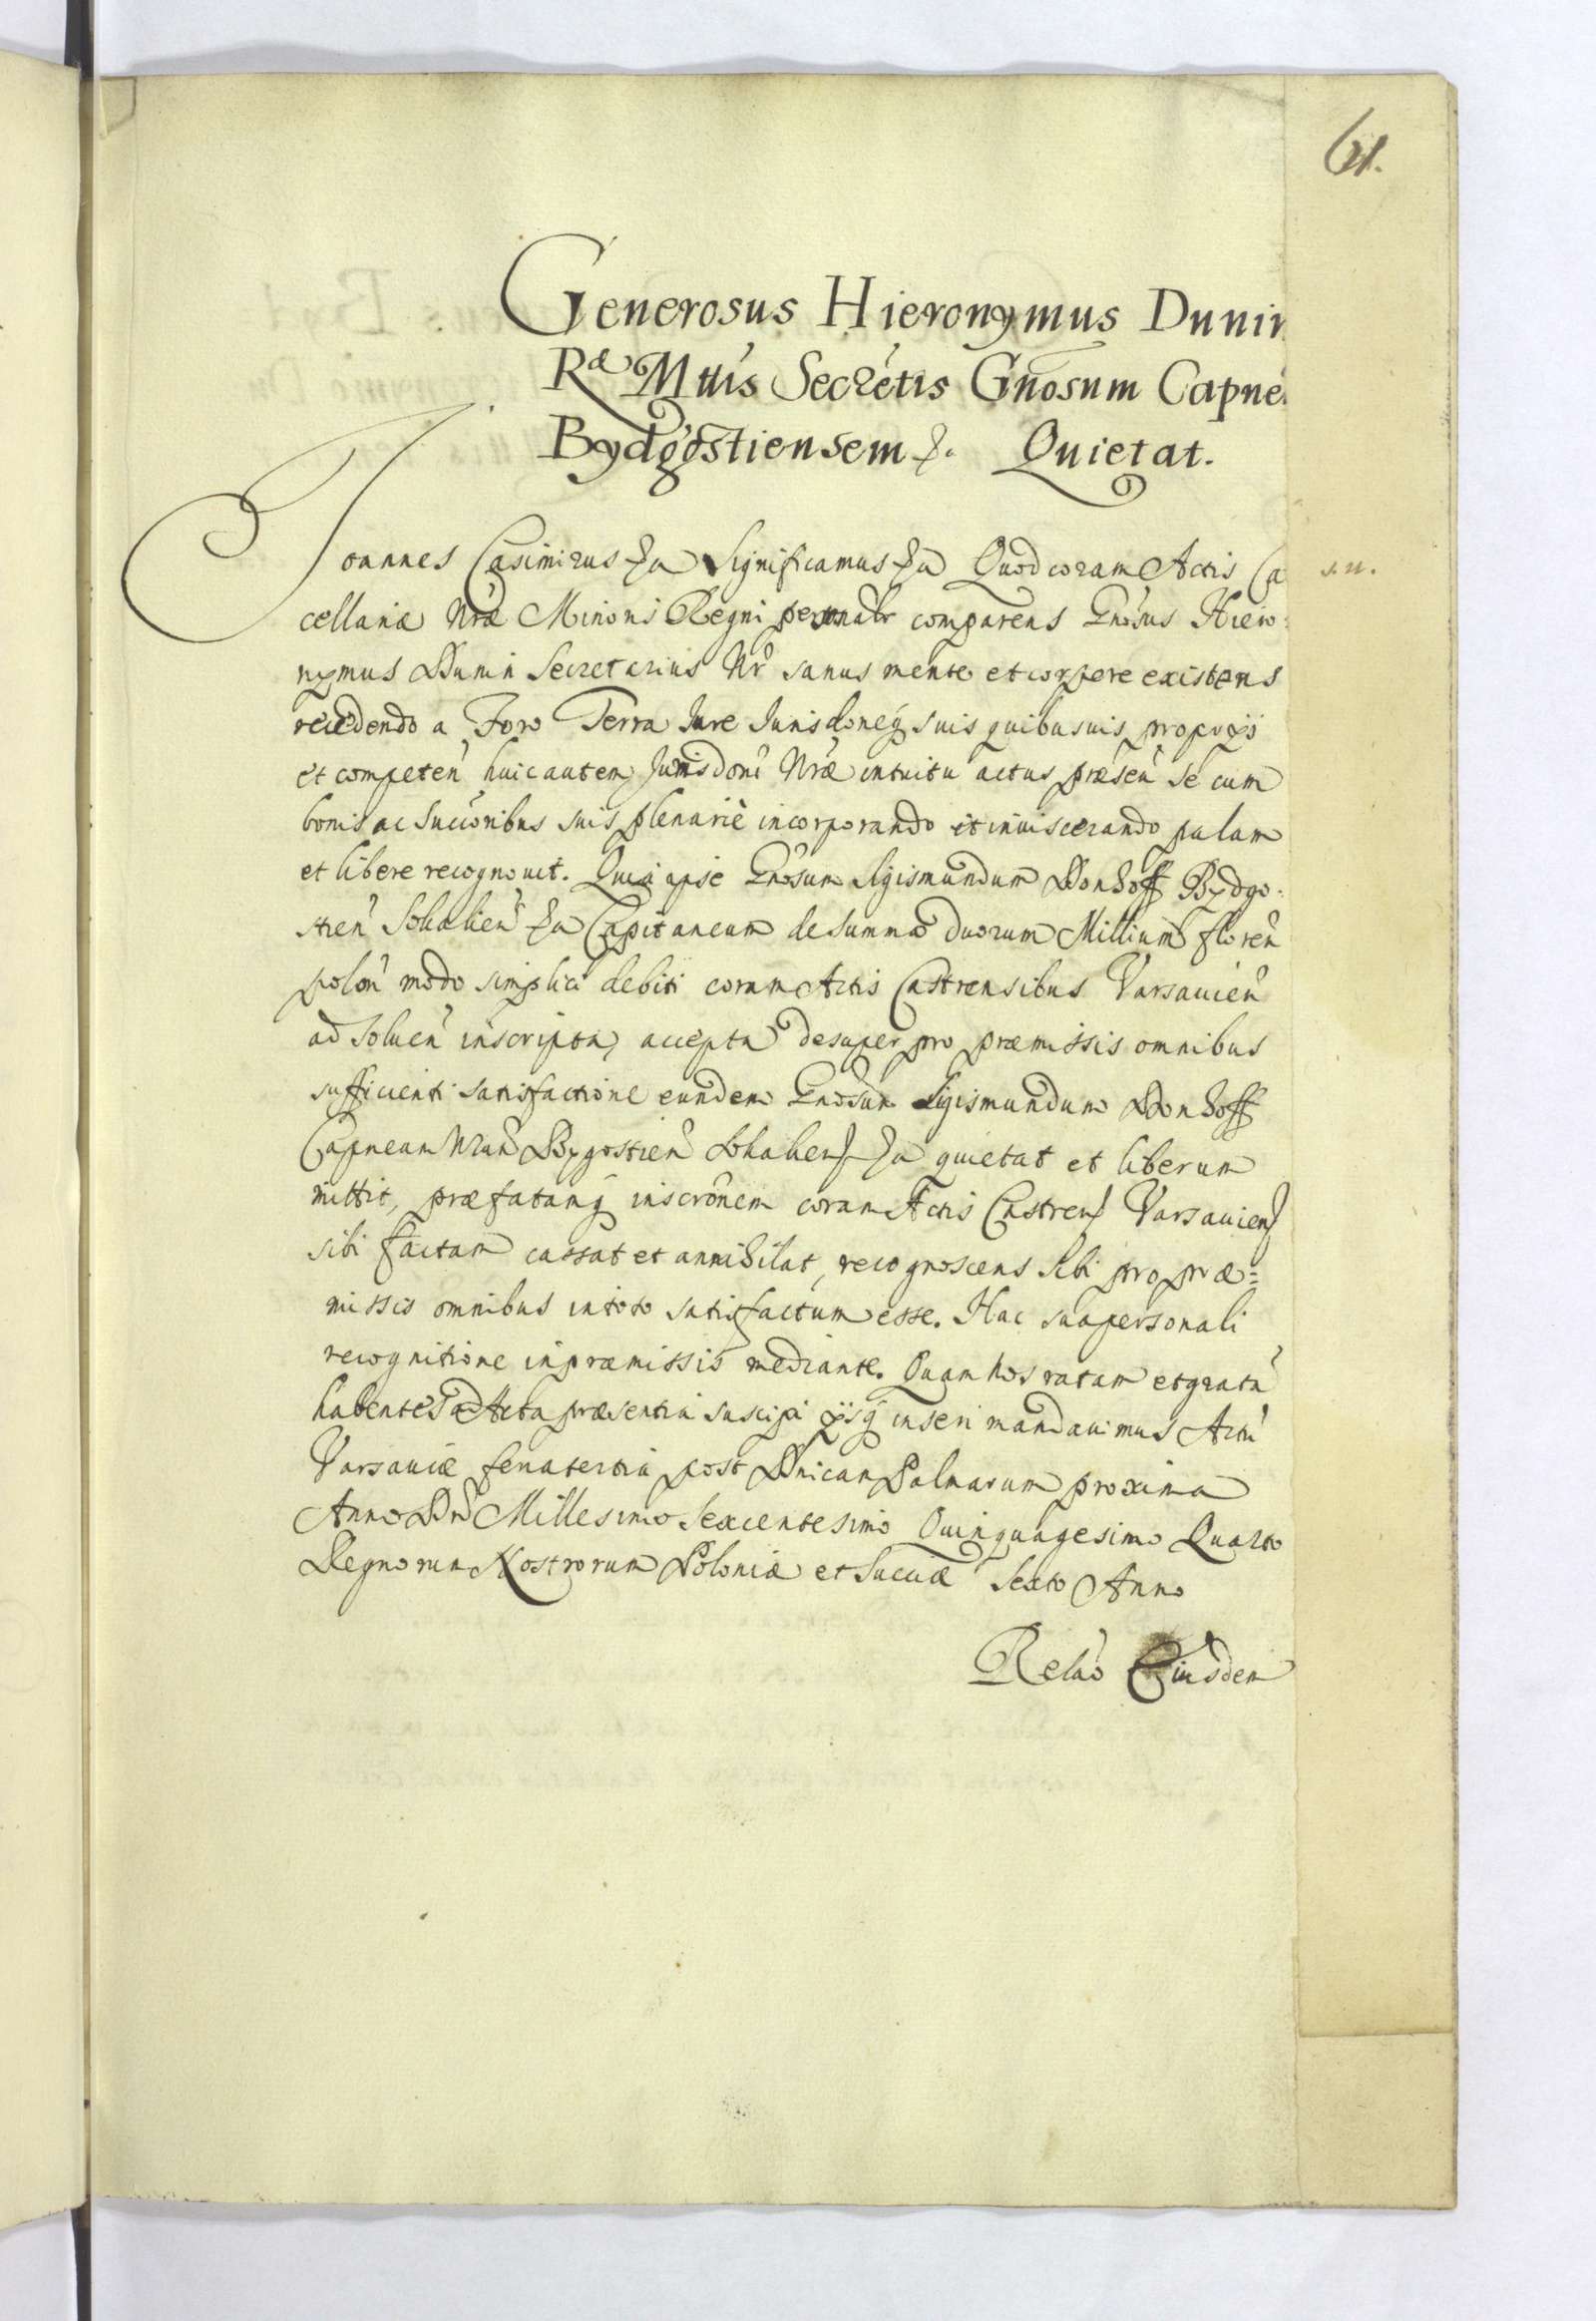 61.
Generosus Hieronymus Dunin
Rae Mttis Secretis Gnosum Capne
Bydgostiensem &. Quietat.
Joannes Casimirus &a Significamus &a Quod coram Actis Ca
s.n.
cellariæ Nræ Minoris Regni personalr comparens Gnosus Hiero:
nymus Dunin Secretarius Nr sanus mente et corpore existens
recedendo a Foro Terra Jure Jurisdoneq suis quibusuis proprijs
et competen huic autem Jurisdoni Nræ intuitu actus præsen se cum
bonis ac succoribus suis plenariè incorporando et inuiscerando palam
et libere recognouit. Quia ipse Gnosum Sigismundum Donhoff Bydgo:
stien Sokalien &a Capitaneum de summa duorum Millium floren
polon modo simplici debiti coram Actis Castrensibus Varsauien
ad soluen inscripta, accepta desuper pro præmissis omnibus
sufficienti satisfactione eundem Gnosum Sigismundum Donhoff
Capneum Nrum Bygostien Sokalien &a quietat et liberum
mittit, præfatamq inscronem coram Actis Castren Varsauien
sibi factam cassat et annihilat, recognoscens sibi pro præ=
missis omnibus in toto satisfactum esse. Hac sua personali
recognitione in præmissis mediante. Quam nos ratam et grata
habentes ad Acta præsentia suscipi ijsq inseri mandauimus Actu
Varsauiæ feria tertia post Dnicam Palmarum proxima
Anno Dni Millesimo Sexcentesimo Quinquagesimo Quarto
Regnorum Nostrorum Poloniæ et Sueciæ Sexto Anno
Relao Eiusdem